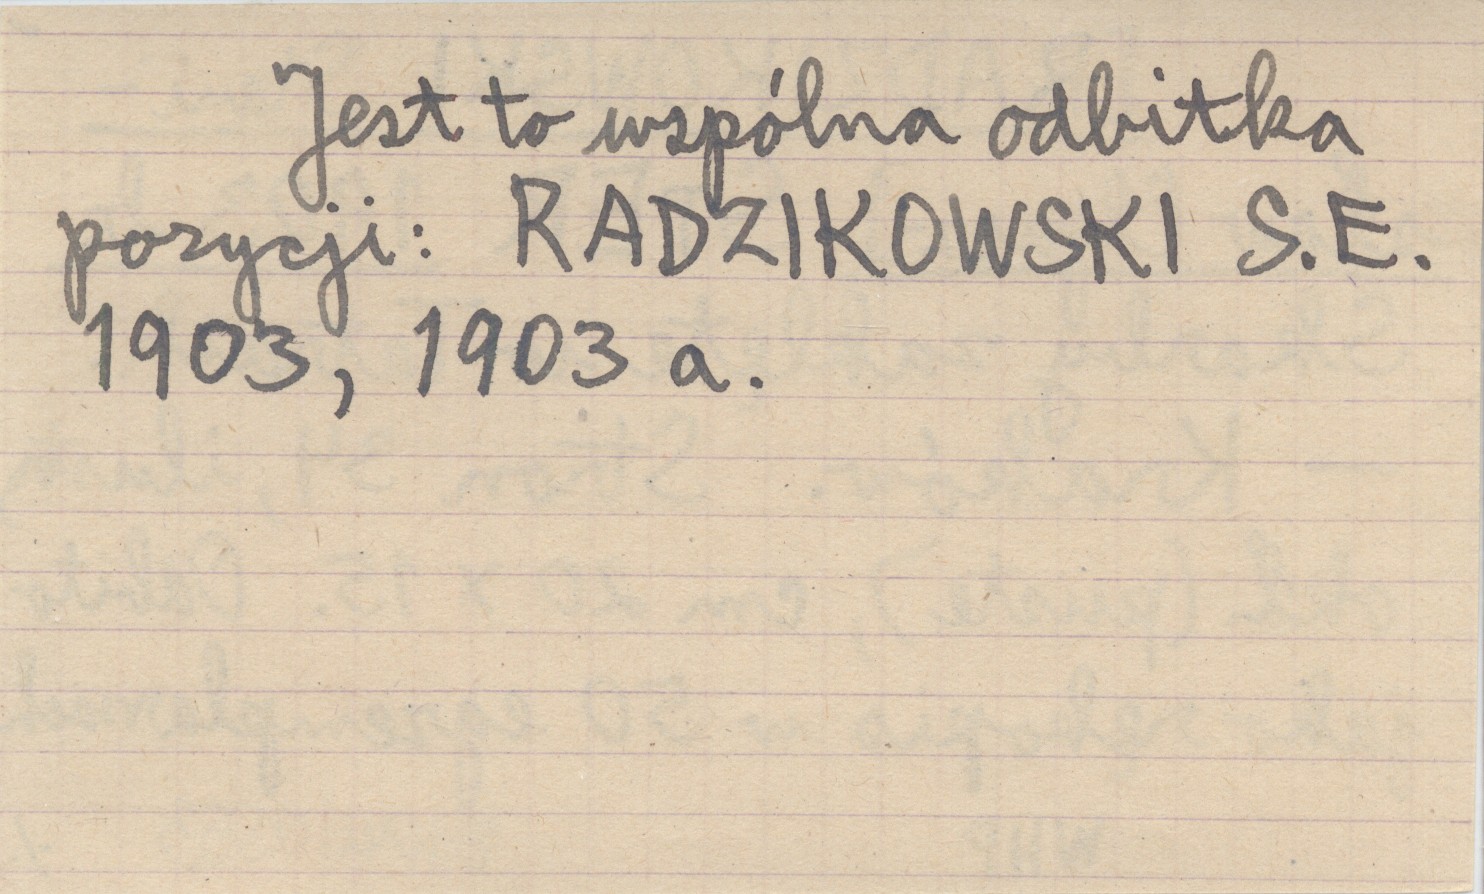 Jest to wspólna odbitka
pozycji: RADZIKOWSKI S.E.
1903, 1903 a.